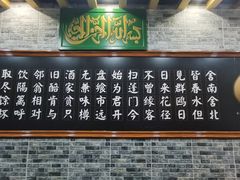 بسم الله الرحمن الرحيم
舍南舍北
皆春水但
見群鸥日
日来花径
不曾缘客
扫蓬门今
始为君开
盘飧市远
无兼味樽
酒家贫只
旧醅肯与
邻翁相对
饮隔篱呼
取尽馀杯